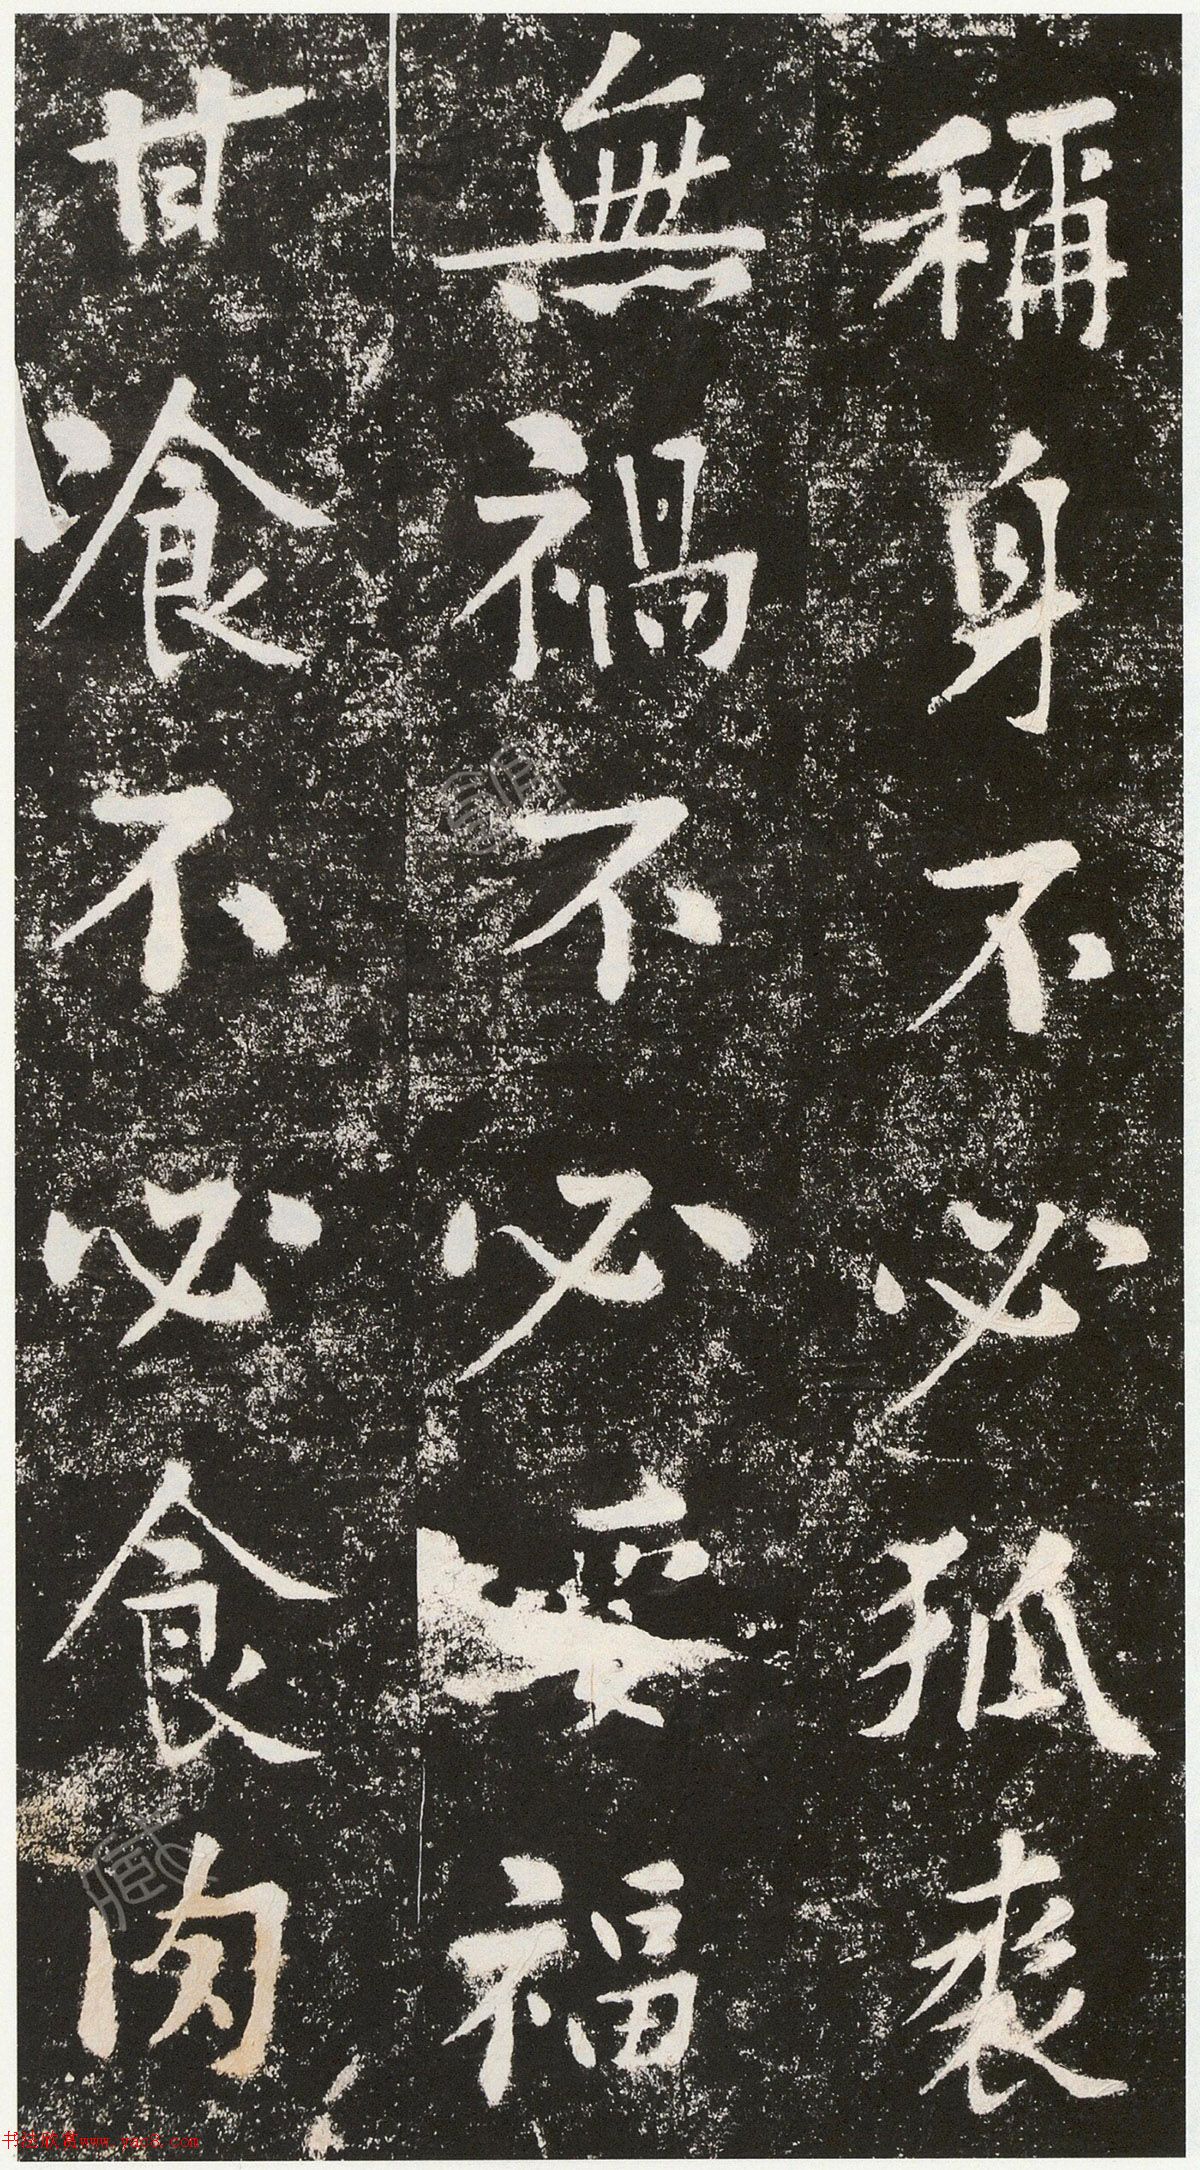 稱身不必狐裘
無禍不必受福
甘飡不必食肉
书法欣赏www.yac8.com